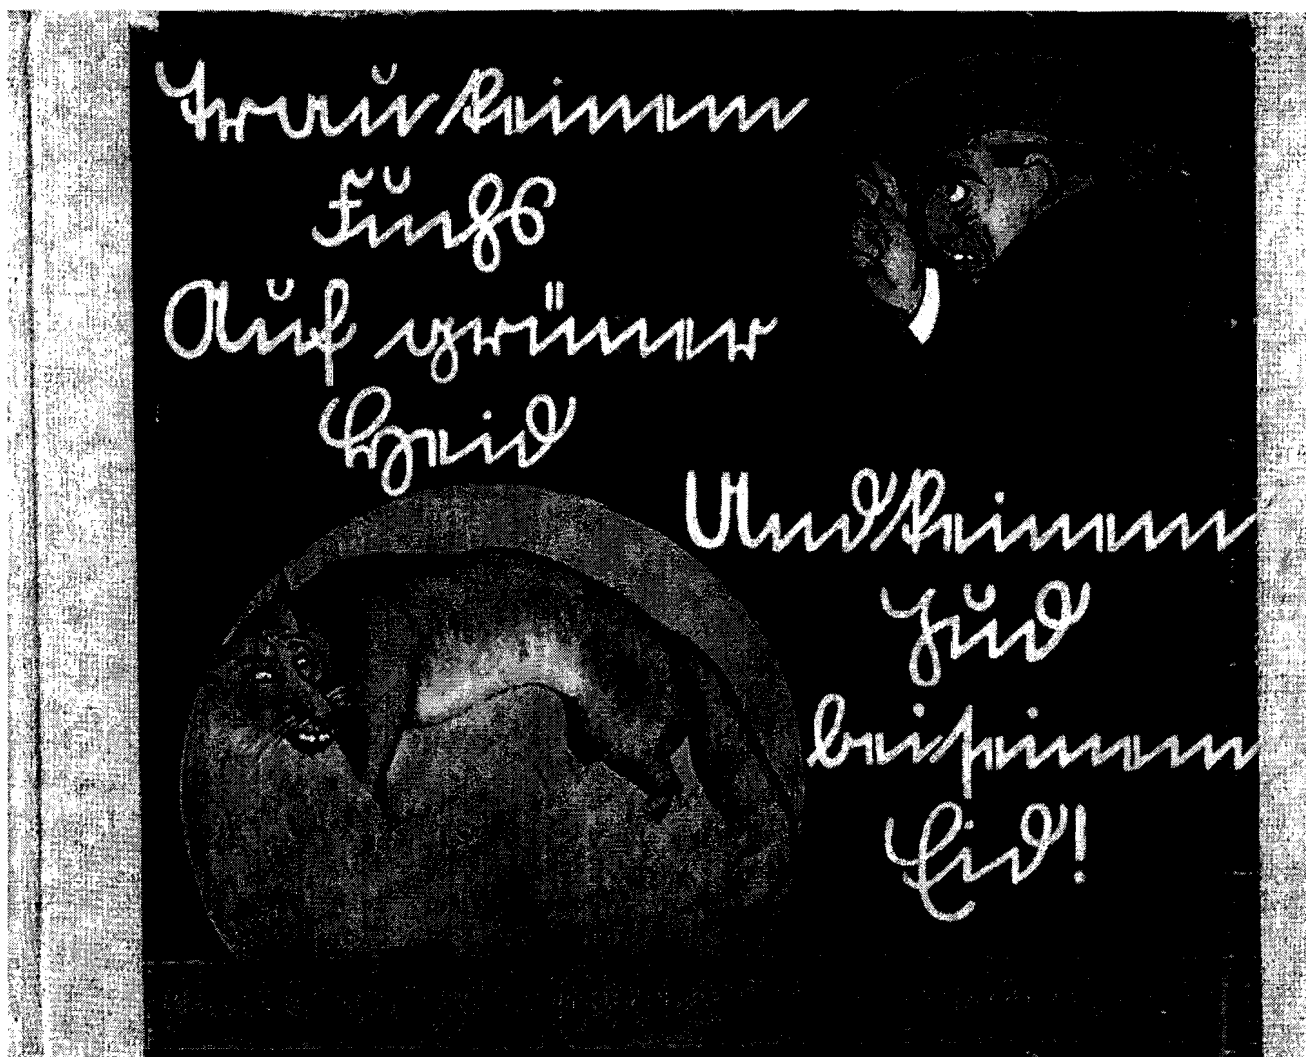 Trau keinem
Fuchs
Auf grüner
Heid
Und keinem
Jud
bei seinem
Eid!